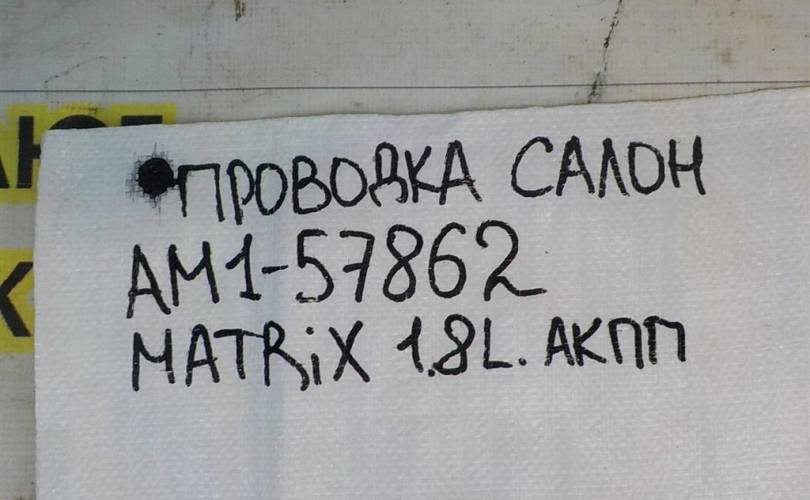 ПРОВОДКА САЛОН
АМ1-57862
MATRiX 1.8L. АКПП